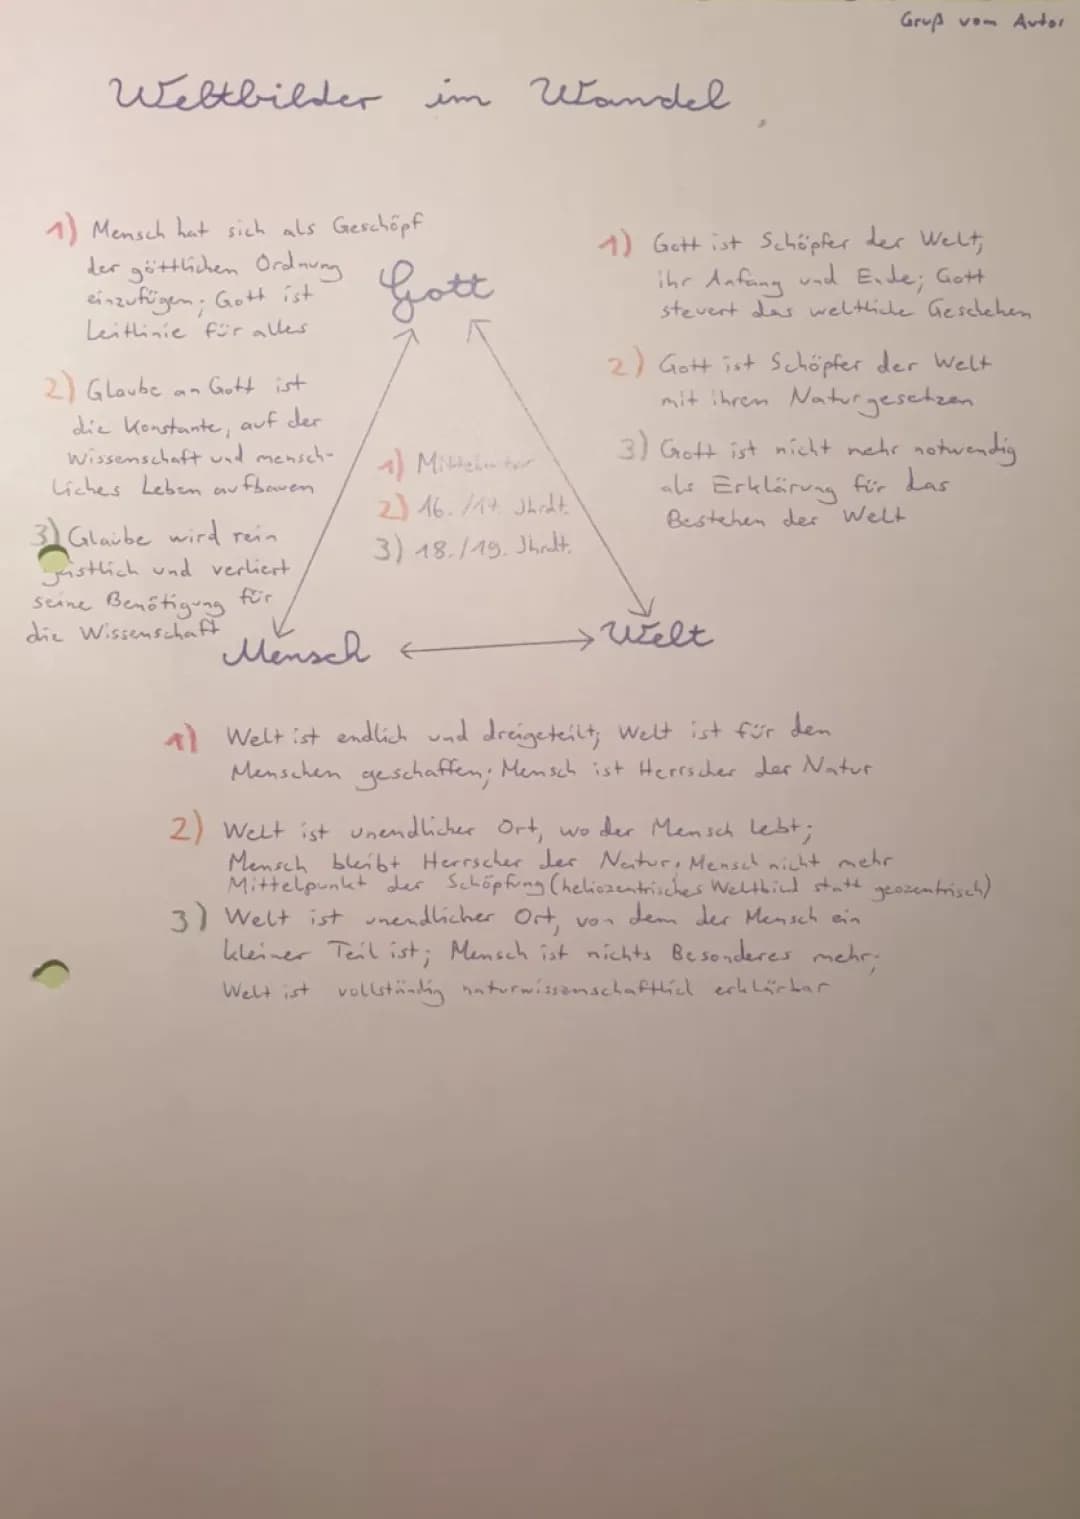 Gruß vom Autor
Weltbilder im Wandel
1) Mensch hat sich als Geschöpf
der göttlichen Ordnung
einzufügen; Gott ist
Leitlinie für alles
2) Glaube an Gott ist
die Konstante, auf der
Wissenschaft und mensch-
liches Leben aufbauen
3) Glaube wird rein
geistlich und verliert
seine Benötigung für
die Wissenschaft
Gott
1) Mittelalter
2) 16./17. Jhrdt.
3) 18./19. Jhrdt.
1) Gott ist Schöpfer der Welt,
ihr Anfang und Ende; Gott
steuert das weltliche Geschehen
2) Gott ist Schöpfer der Welt
mit ihren Naturgesetzen
3) Gott ist nicht mehr notwendig
als Erklärung für das
Bestehen der Welt
Mensch
Welt
1) Welt ist endlich und dreigeteilt; Welt ist für den
Menschen geschaffen; Mensch ist Herrscher der Natur
2) Welt ist unendlicher Ort, wo der Mensch lebt;
Mensch bleibt Herrscher der Natur, Mensch nicht mehr
Mittelpunkt der Schöpfung (heliozentrisches Weltbild statt geozentrisch)
3) Welt ist unendlicher Ort, von dem der Mensch ein
kleiner Teil ist; Mensch ist nichts Besonderes mehr;
Welt ist vollständig naturwissenschaftlich erklärbar